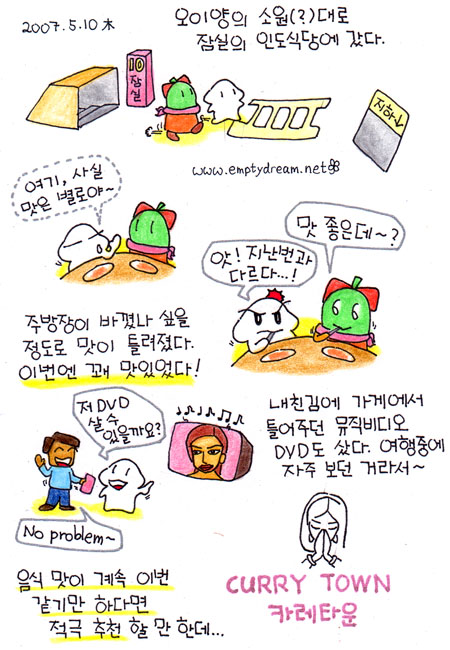 2007.5.10 木
오이양의 소원(?)대로
잠실의 인도식당에 갔다.
10
잠실
지하↓
www.emptydream.net
여기, 사실
맛은 별로야~
맛 좋은데~?
앗! 지난번과
다르다...!
주방장이 바꼈나 싶을
정도로 맛이 틀려졌다.
이번엔 꽤 맛있었다!
저 DVD
살 수
있을까요?
No problem~
내친김에 가게에서
틀어주던 뮤직비디오
DVD도 샀다. 여행중에
자주 보던 거라서~
음식 맛이 계속 이번
같기만 하다면
적극 추천 할 만 한데...
CURRY TOWN
카레타운